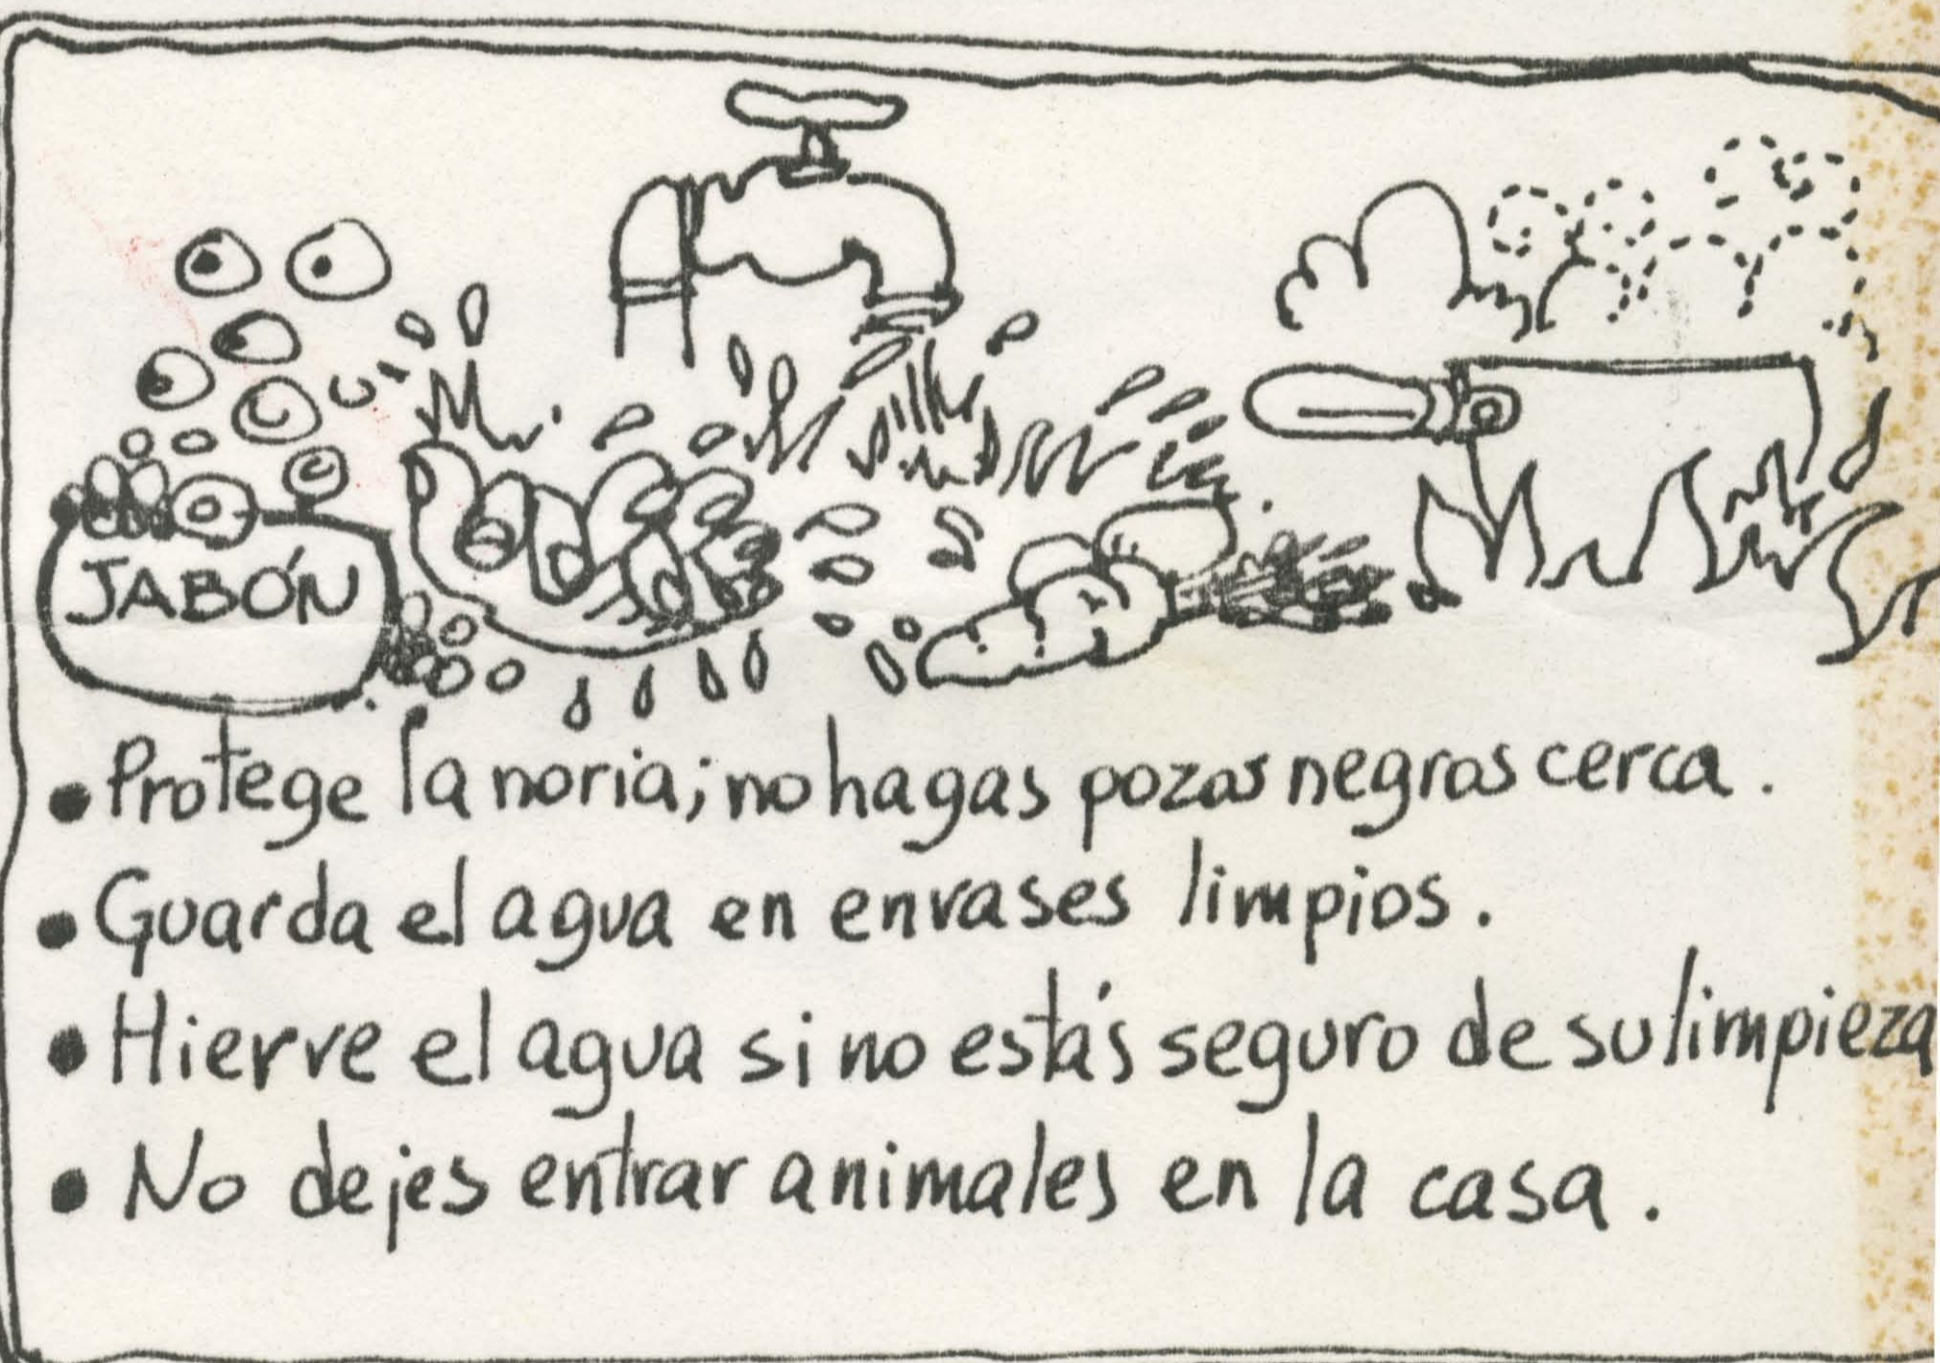 JABÓN
• Protege la noria; no hagas pozos negros cerca.
• Guarda el agua en envases limpios.
• Hierve el agua si no estás seguro de su limpieza
• No dejes entrar animales en la casa.